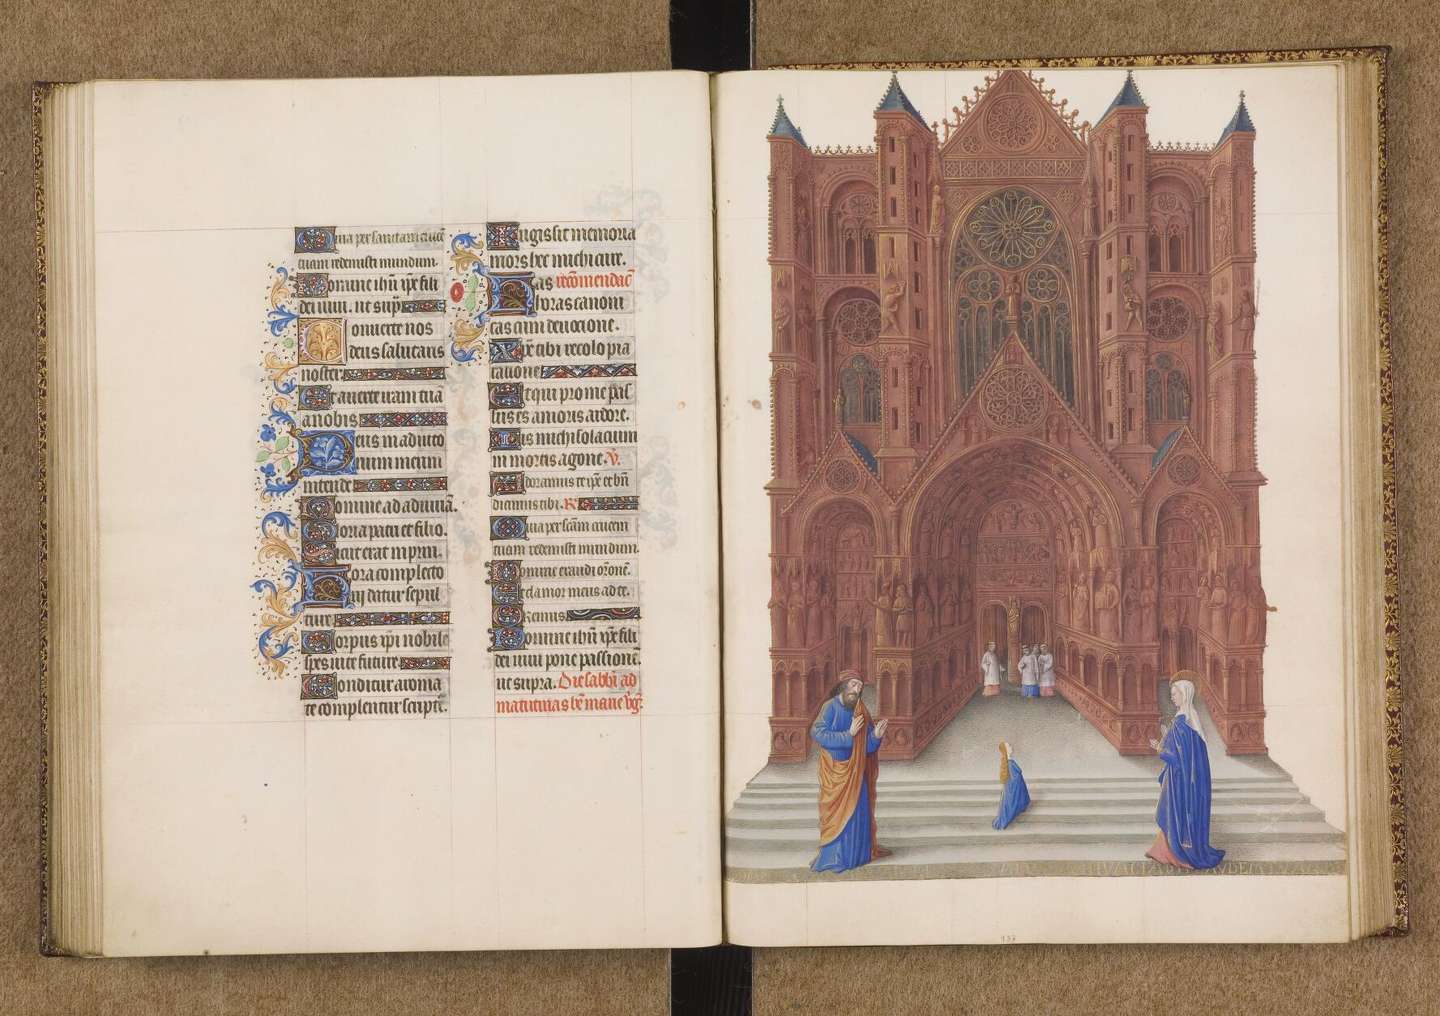 Quia per sanctam crucē
tuam redemisti mundum.
Domine ihū xp̄e fili
dei uiui. ut sup̄
Conuerte nos
deus salutaris
noster
Et auerte iram tuā
a nobis
Deus in adiuto
rium meum
intende
Domine ad adiuuā.
Gloria patri et filio.
Sicut erat in prin.
Hora completo
rij datur sepul
ture
Corpus xp̄i nobile
spes uite future
Conditur aroma
te complentur scripte.
Iugis sit memoria
mors hec michi cure.
Has recōmendac̄
horas canoni
cas cum deuocione.
Xp̄e tibi recolo pia
racione
Et qui pro me pas
sus es amoris ardore.
Sis michi solacium
in mortis agone. V̄.
Adoramus te xp̄e et bn̄
dicimus tibi. R̄
Quia per scām crucem
tuam redemisti mundum.
Domine exaudi or̄onē.
Et clamor meus ad te.
Oremus
Domine ihū xp̄e fili
dei uiui pone passionē.
ut supra. Die sabb̄i ad
matutinas bē marie v̄ḡ.
137